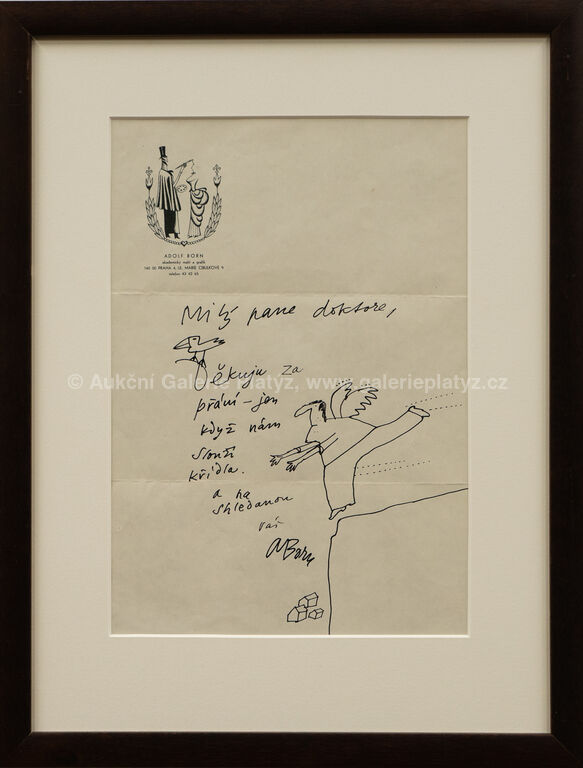 ADOLF BORN
akademický malíř a grafik
140 00 PRAHA 4, UL. MARIE CIBULKOVÉ 9
telefon 43 42 65
Milý pane doktore,
Děkuju za
přání – jen
když nám
slouží
křídla.
a na
shledanou
váš
ABorn
© Aukční Galerie Platýz, www.galerieplatyz.cz